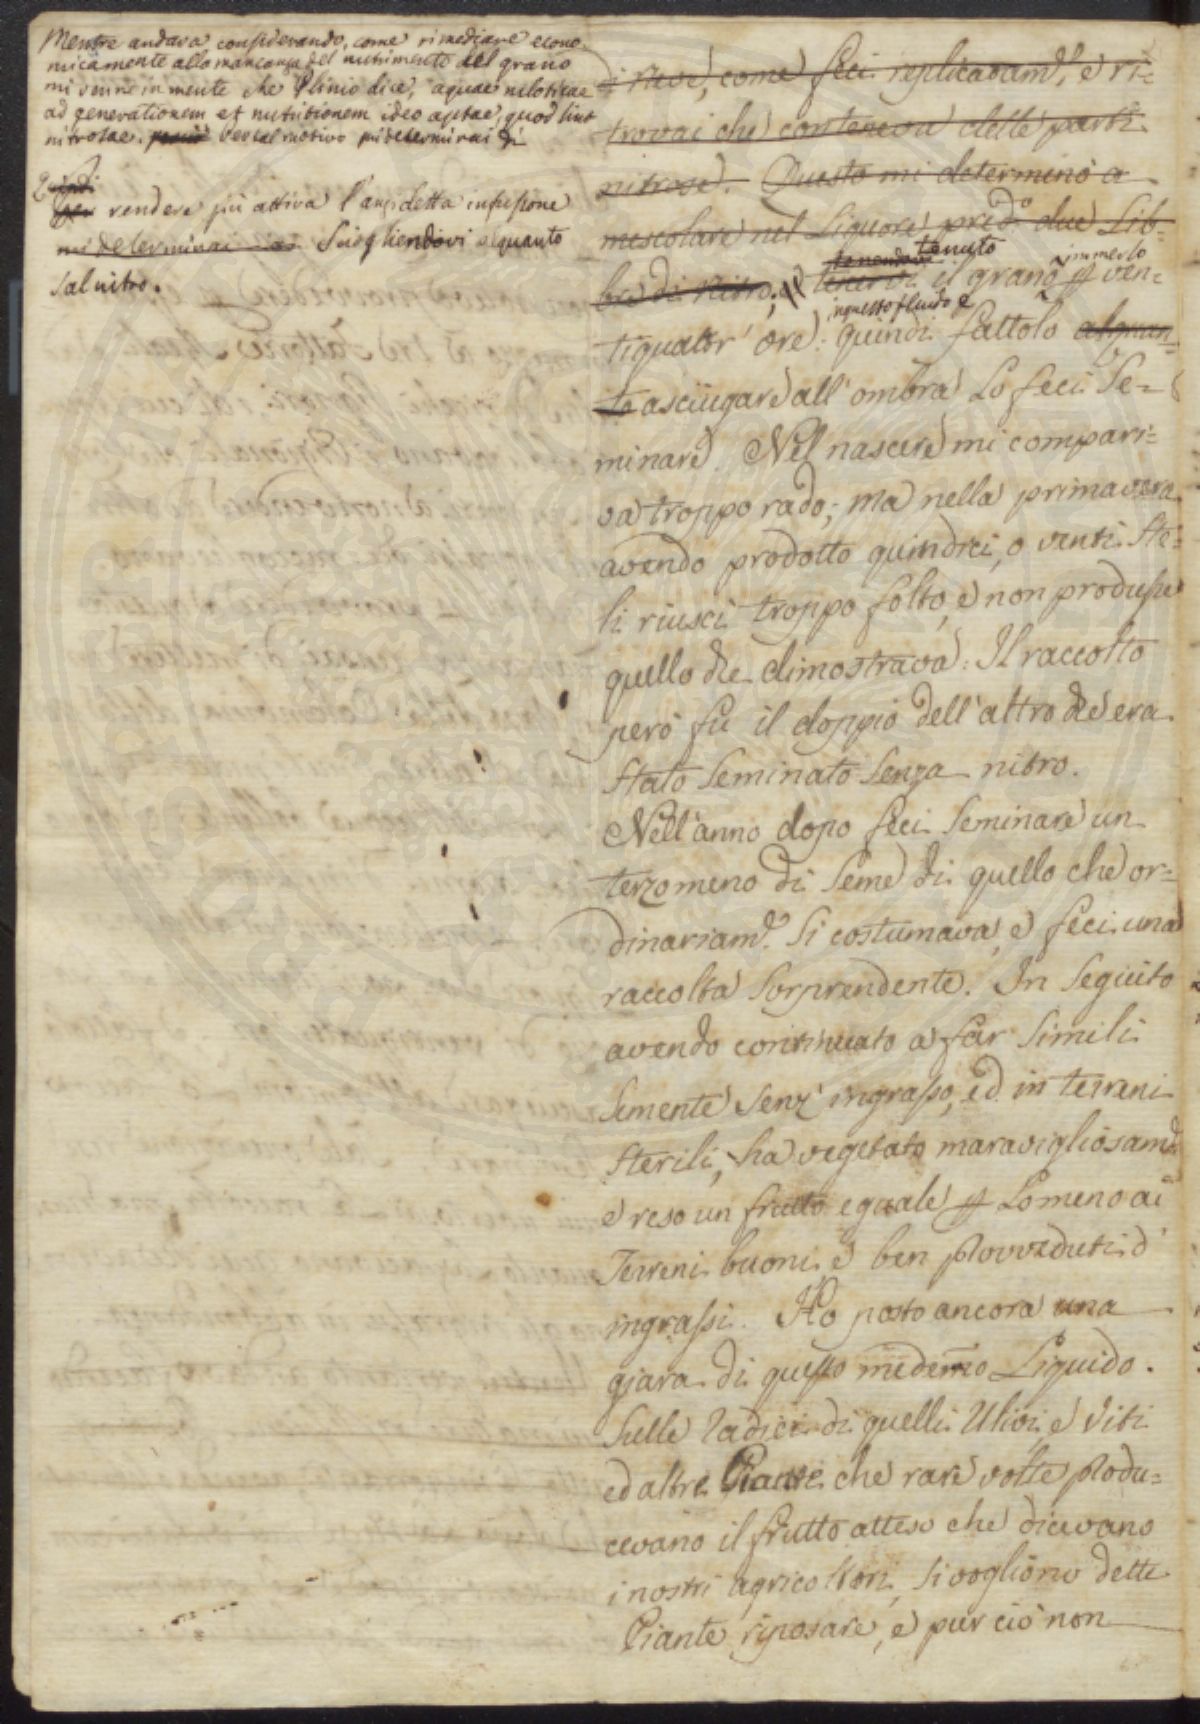 Mentre andava considerando, come rimediare econo-
micamente alla mancanza del nutrimento del grano
mi venne in mente che Plinio dice, aquae niloticae
ad generationem et nutritionem ideo aptae, quod sint
nitrosae. per tal motivo mi determinai di
Quindi
per rendere più attiva l'anzidetta infusione
mi determinai a Sciogliendovi alquanto
Salnitro.
di neve, come feci replicatam.e, e ri=
trovai che conteneva delle parti
nitrose. Questo mi determinò a
mescolare nel Liquore pred.o due Lib=
bre di Nitro;
tenendovi tenuto
tenervi il grano immerso p ven=
in questo fluido e
tiquatr' ore: quindi fattolo alquan=
to asciugare all'ombra Lo feci Se=
minare. Nel nascere mi compari=
va troppo rado; ma nella primavera
avendo prodotto quindici, o venti Ste=
li riuscì troppo folto, e non produsse
quello che dimostrava: Il raccolto
però fu il doppio dell'altro che era
Stato Seminato Senza nitro.
Nell'anno dopo feci Seminare un
terzo meno di Seme di quello che or=
dinariam.e Si costumava, e feci una
raccolta Sorprendente. In Seguito
avendo continuato a far Simili
Semente Senz' ingrasso, ed in terreni
Sterili, ha vegetato maravigliosam.e
e reso un frutto eguale p Lo meno ai
Terreni buoni e ben provveduti d'
ingrassi. Ho posto ancora una
gjara di questo medemo Liquido
Sulle radici di quelli Ulivi, e Viti
ed altre Piante che rare volte produ=
cevano il frutto atteso che dicevano
i nostri agricoltori, Si vogliono dette
Piante riposare, e pur ciò non